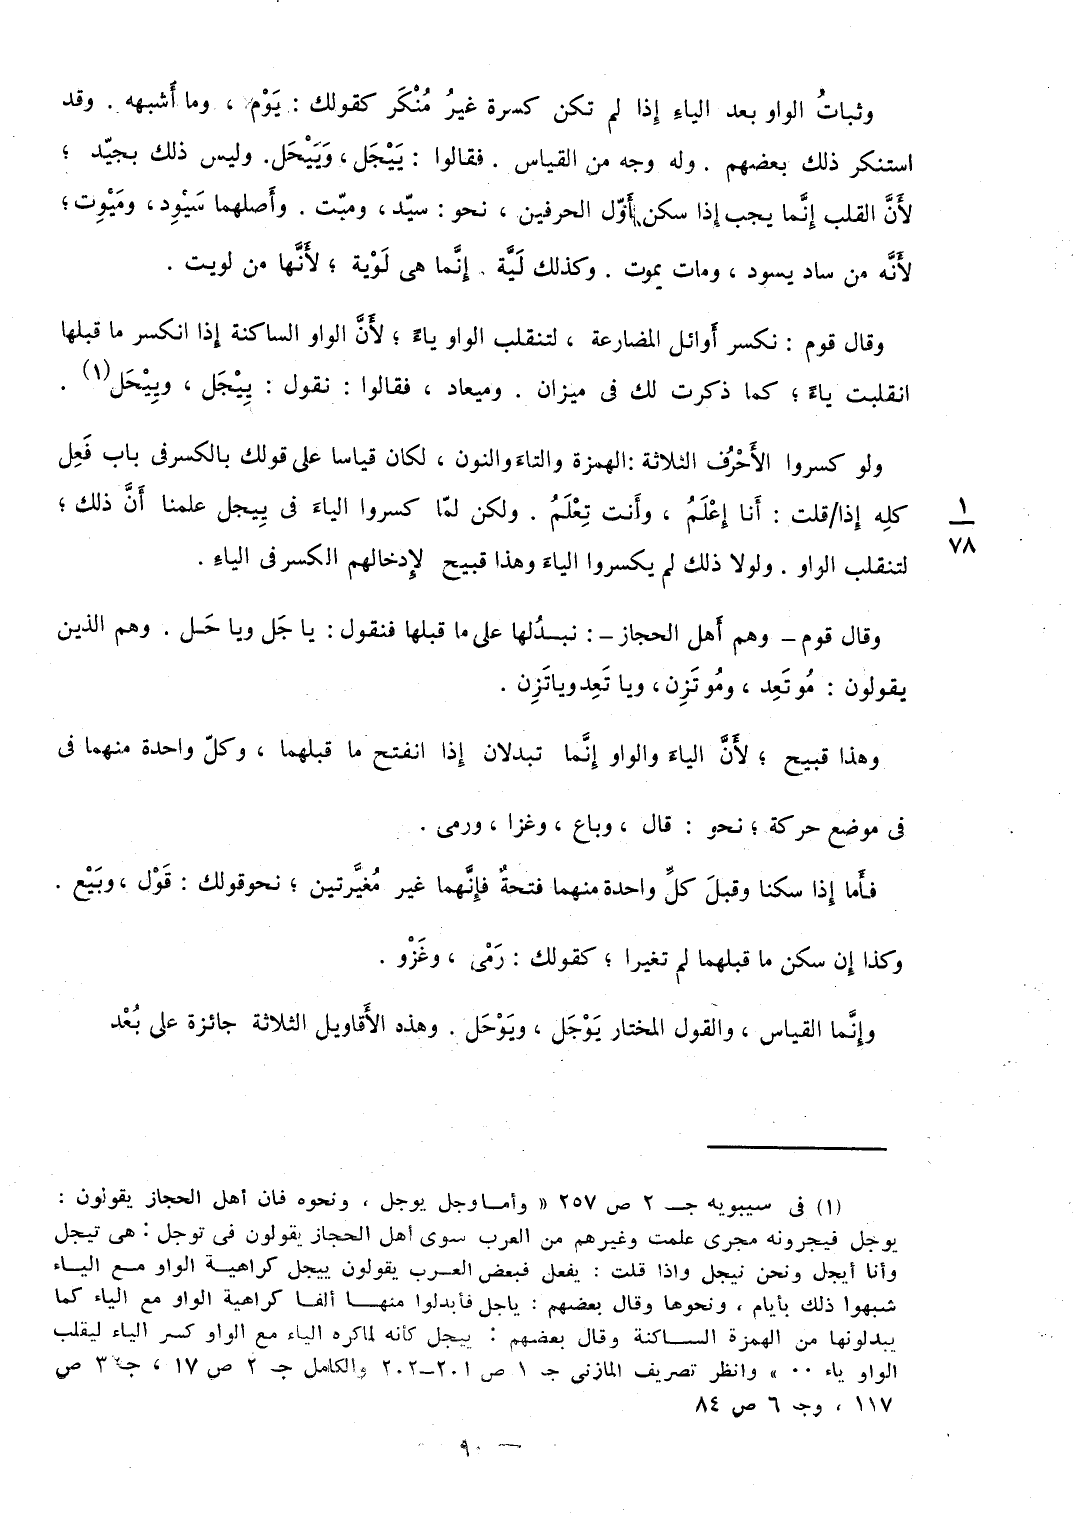 وثباتُ الواو بعد الياءِ إِذا لم تكن كسرة غيرُ مُنْكَر كقولك : يَوْم ، وما أَشبهه . وقد
استنكر ذلك بعضهم . وله وجه من القياس . فقالوا : يَيْجَل ، وَيَيْحَل. وليس ذلك بجيّد ؛
لأَنَّ القلب إِنَّما يجب إِذا سكن أَوّل الحرفين ، نحو : سيّد ، وميّت . وأَصلهما سَيْوِد ، ومَيْوِت ؛
لأَنَّه من ساد يسود ، ومات يموت . وكذلك لَيَّة . إِنَّما هى لَوْية ؛ لأَنَّها من لويت .
وقال قوم : نكسر أَوائل المضارعة ، لتنقلب الواو ياءً ؛ لأَنَّ الواو الساكنة إِذا انكسر ما قبلها
انقلبت ياءً ؛ كما ذكرت لك فى ميزان . وميعاد ، فقالوا : نقول : يِيْجَل ، ويِيْحَل(١) .
ولو كسروا الأَحْرُف الثلاثة :الهمزة والتاءَ والنون ، لكان قياسا على قولك بالكسرفى باب فَعِل
كله إِذا/قلت : أَنا إِعْلَمُ ، وأَنت تِعْلَمُ . ولكن لمّا كسروا الياءَ فى يِيجل علمنا أَنَّ ذلك ؛
١
٧٨
لتنقلب الواو . ولولا ذلك لم يكسروا الياءَ وهذا قبيح لإِدخالهم الكسر فى الياءِ .
وقال قوم – وهم أَهل الحجاز – : نبـدُلها على ما قبلها فنقول : يا جَل ويا حَـل . وهم الذين
يقولون : مُو تَعِد ، ومُو تَزِن ، ويا تَعِد وياتَزِن .
وهذا قبيح ؛ لأَنَّ الياءَ والواو إِنَّما تبدلان إِذا انفتح ما قبلهما ، وكلّ واحدة منهما فى
فى موضع حركة ؛ نحو : قال ، وباع ، وغزا ، ورمى .
فأَما إِذا سكنا وقبلَ كلِّ واحدة منهما فتحةٌ فإِنَّهما غير مُغيَّرتين ؛ نحوقولك : قَوْل ، وبَيْع .
وكذا إِن سكن ما قبلهما لم تغيرا ؛ كقولك : رَمْى ، وغَزْو .
وإِنَّما القياس ، والقول المختار يَوْجَل ، ويَوْحَل . وهذه الأَقاويل الثلاثة جائزة على بُعْد
(١) فى سيبويه جـ ٢ ص ٢٥٧ « وأمـا وجل يوجل ، ونحوه فان أهل الحجاز يقولون :
يوجل فيجرونه مجرى علمت وغيرهم من العرب سوى أهل الحجاز يقولون فى توجل : هى تيجل
وأنا أيجل ونحن نيجل واذا قلت : يفعل فبعض العـرب يقولون ييجل كراهيـة الواو مـع اليـاء
شبهوا ذلك بأيام ، ونحوها وقال بعضهم : ياجل فأبدلوا منهـا ألفـا كراهية الواو مع الياء كما
يبدلونها من الهمزة السـاكنة وقال بعضهم : ييجل كأنه لماكره الياء مع الواو كسر الياء ليقلب
الواو ياء ٠٠ » وانظر تصريف المازنى جـ ١ ص ٢٠١–٢٠٢ والكامل جـ ٢ ص ١٧ ، جـ ٣ ص
١١٧ ، وجـ ٦ ص ٨٤
— ٩٠